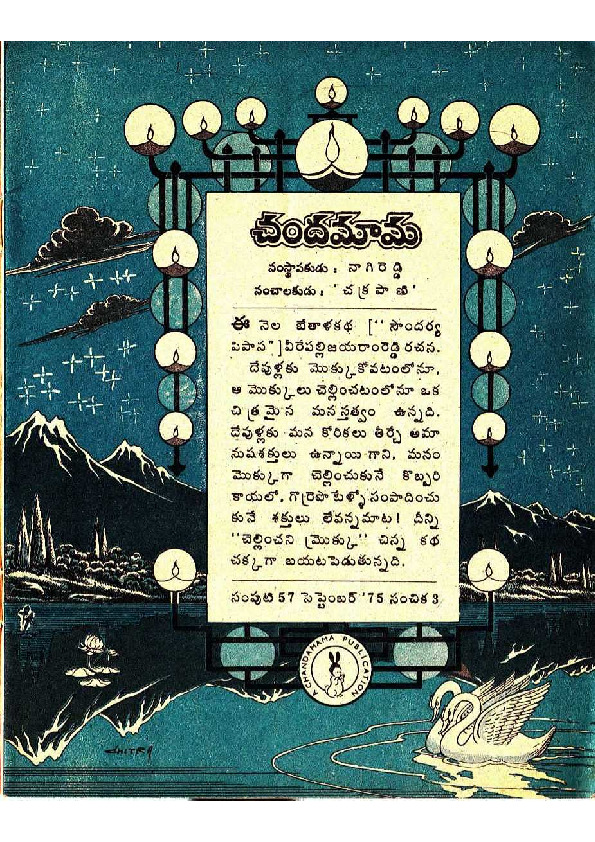 చందమామ
సంస్థాపకుడు : నాగిరెడ్డి
సంచాలకుడు : 'చక్రపాణి'
ఈ నెల బేతాళకథ ["సౌందర్య
పిపాస"] వీరేపల్లిజయరాంరెడ్డి రచన.
దేవుళ్లకు మొక్కుకోవటంలోనూ,
ఆ మొక్కులు చెల్లించటంలోనూ ఒక
చిత్రమైన మనస్తత్వం ఉన్నది.
దేవుళ్లకు మన కోరికలు తీర్చే అమా
నుషశక్తులు ఉన్నాయిగాని, మనం
మొక్కుగా చెల్లించుకునే కొబ్బరి
కాయలో, గొర్రెపొటేళ్ళో సంపాదించు
కునే శక్తులు లేవన్నమాట! దీన్ని
"చెల్లించని మొక్కు" చిన్న కథ
చక్కగా బయటపెడుతున్నది.
సంపుటి 57 సెప్టెంబర్ '75 సంచిక 3
A CHANDAMAMA PUBLICATION
CHITRA